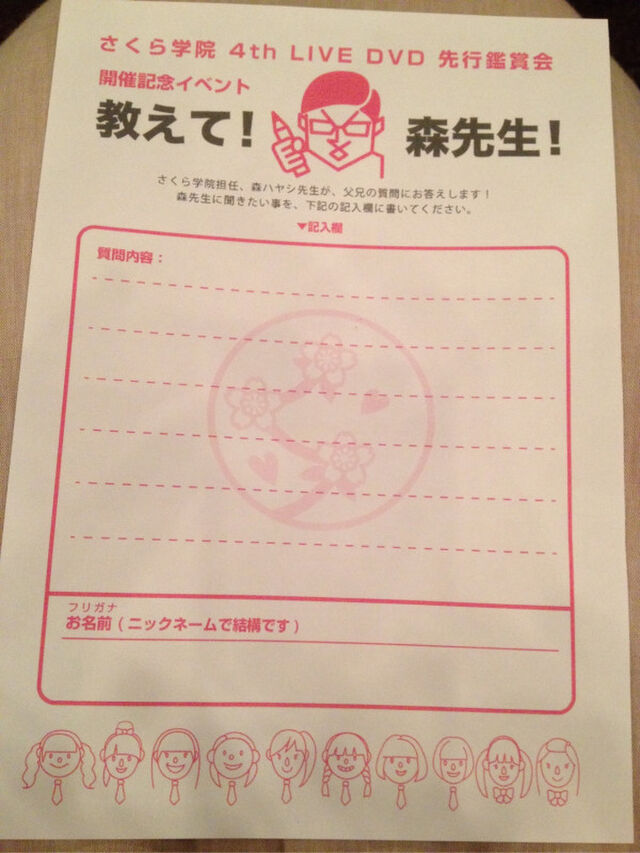 さくら学院 4th LIVE DVD 先行鑑賞会
開催記念イベント
教えて! 森先生!
さくら学院担任、森ハヤシ先生が、父兄の質問にお答えします!
森先生に聞きたい事を、下記の記入欄に書いてください。
▼記入欄
質問内容:
フリガナ
お名前(ニックネームで結構です)